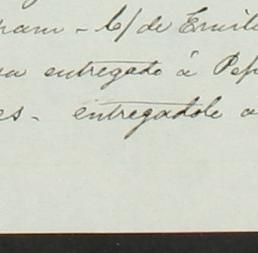 - C/ de Emil
entregado á Pep
es - entregadole a